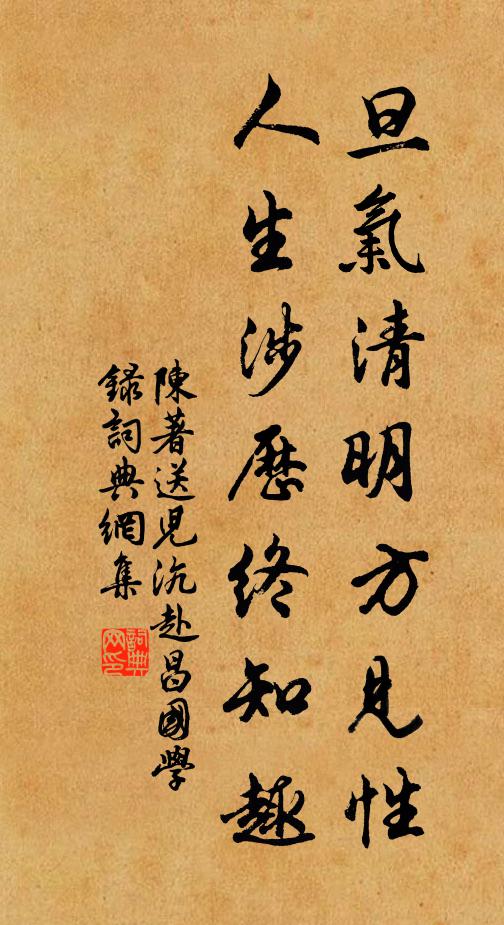 旦氣清明方見性
人生涉歷終知趣
陳著送兒沆赴昌國學
錄詞典網集
詞典网印